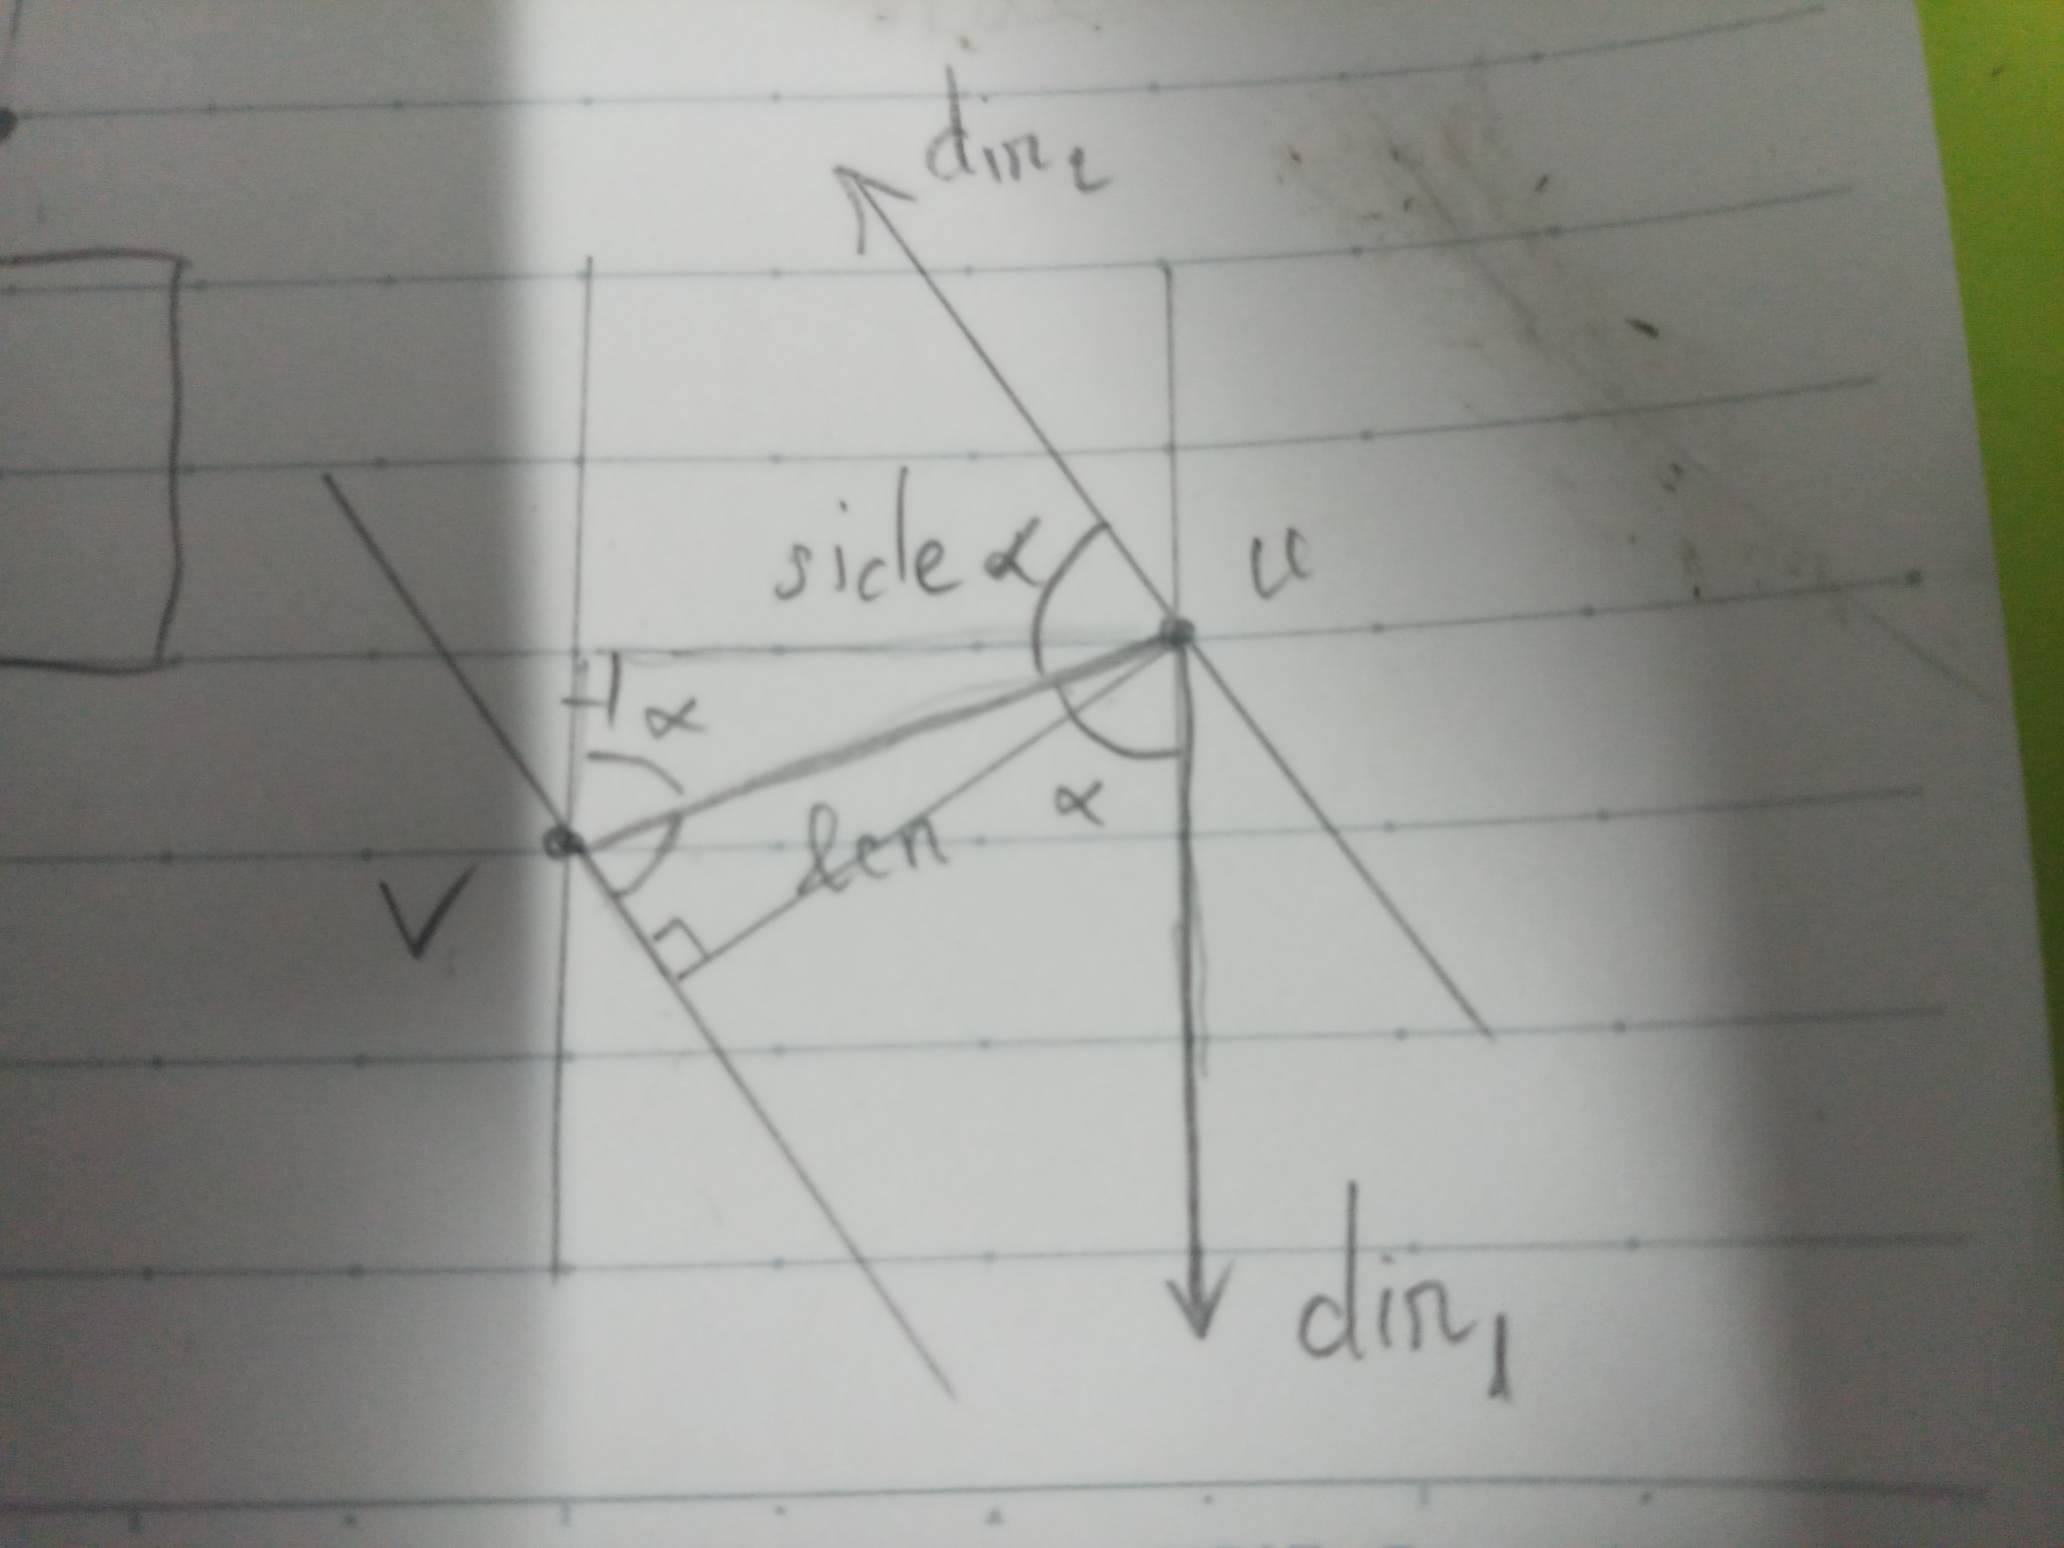 dir₂
side α
u
α
α
len
V
dir₁